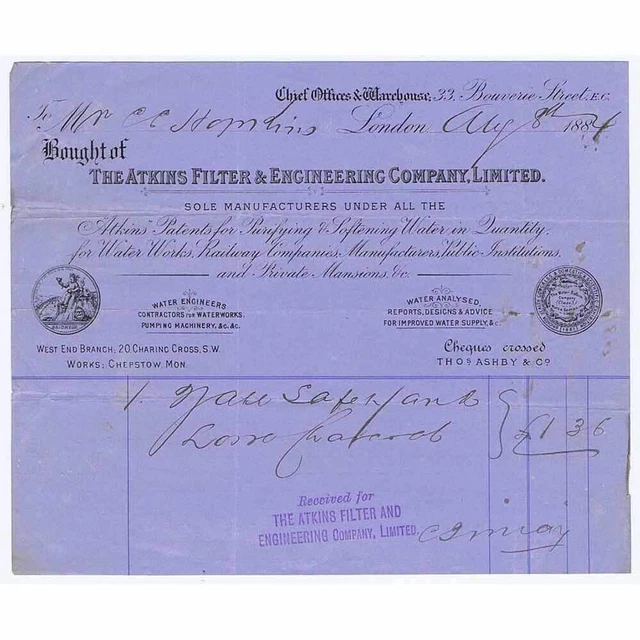 Chief Offices & Warehouse, 33, Bouverie Street, E.C.
To Mr C C Hopkins London Aug 8th 1884
Bought of
THE ATKINS FILTER & ENGINEERING COMPANY, LIMITED.
SOLE MANUFACTURERS UNDER ALL THE
"Atkins" Patents for Purifying & Softening Water in Quantity,
for Water Works, Railway Companies, Manufacturers, Public Institutions,
and Private Mansions, &c.
WATER ENGINEERS
CONTRACTORS FOR WATERWORKS,
PUMPING MACHINERY, &c. &c.
WATER ANALYSED,
REPORTS, DESIGNS & ADVICE
FOR IMPROVED WATER SUPPLY, &c
WEST END BRANCH; 20 CHARING CROSS, S.W.
WORKS; CHEPSTOW, MON.
Cheques crossed
THOS ASHBY & CO
1.
Loose Charcoal £1 3 6
Received for
THE ATKINS FILTER AND
ENGINEERING COMPANY, LIMITED.